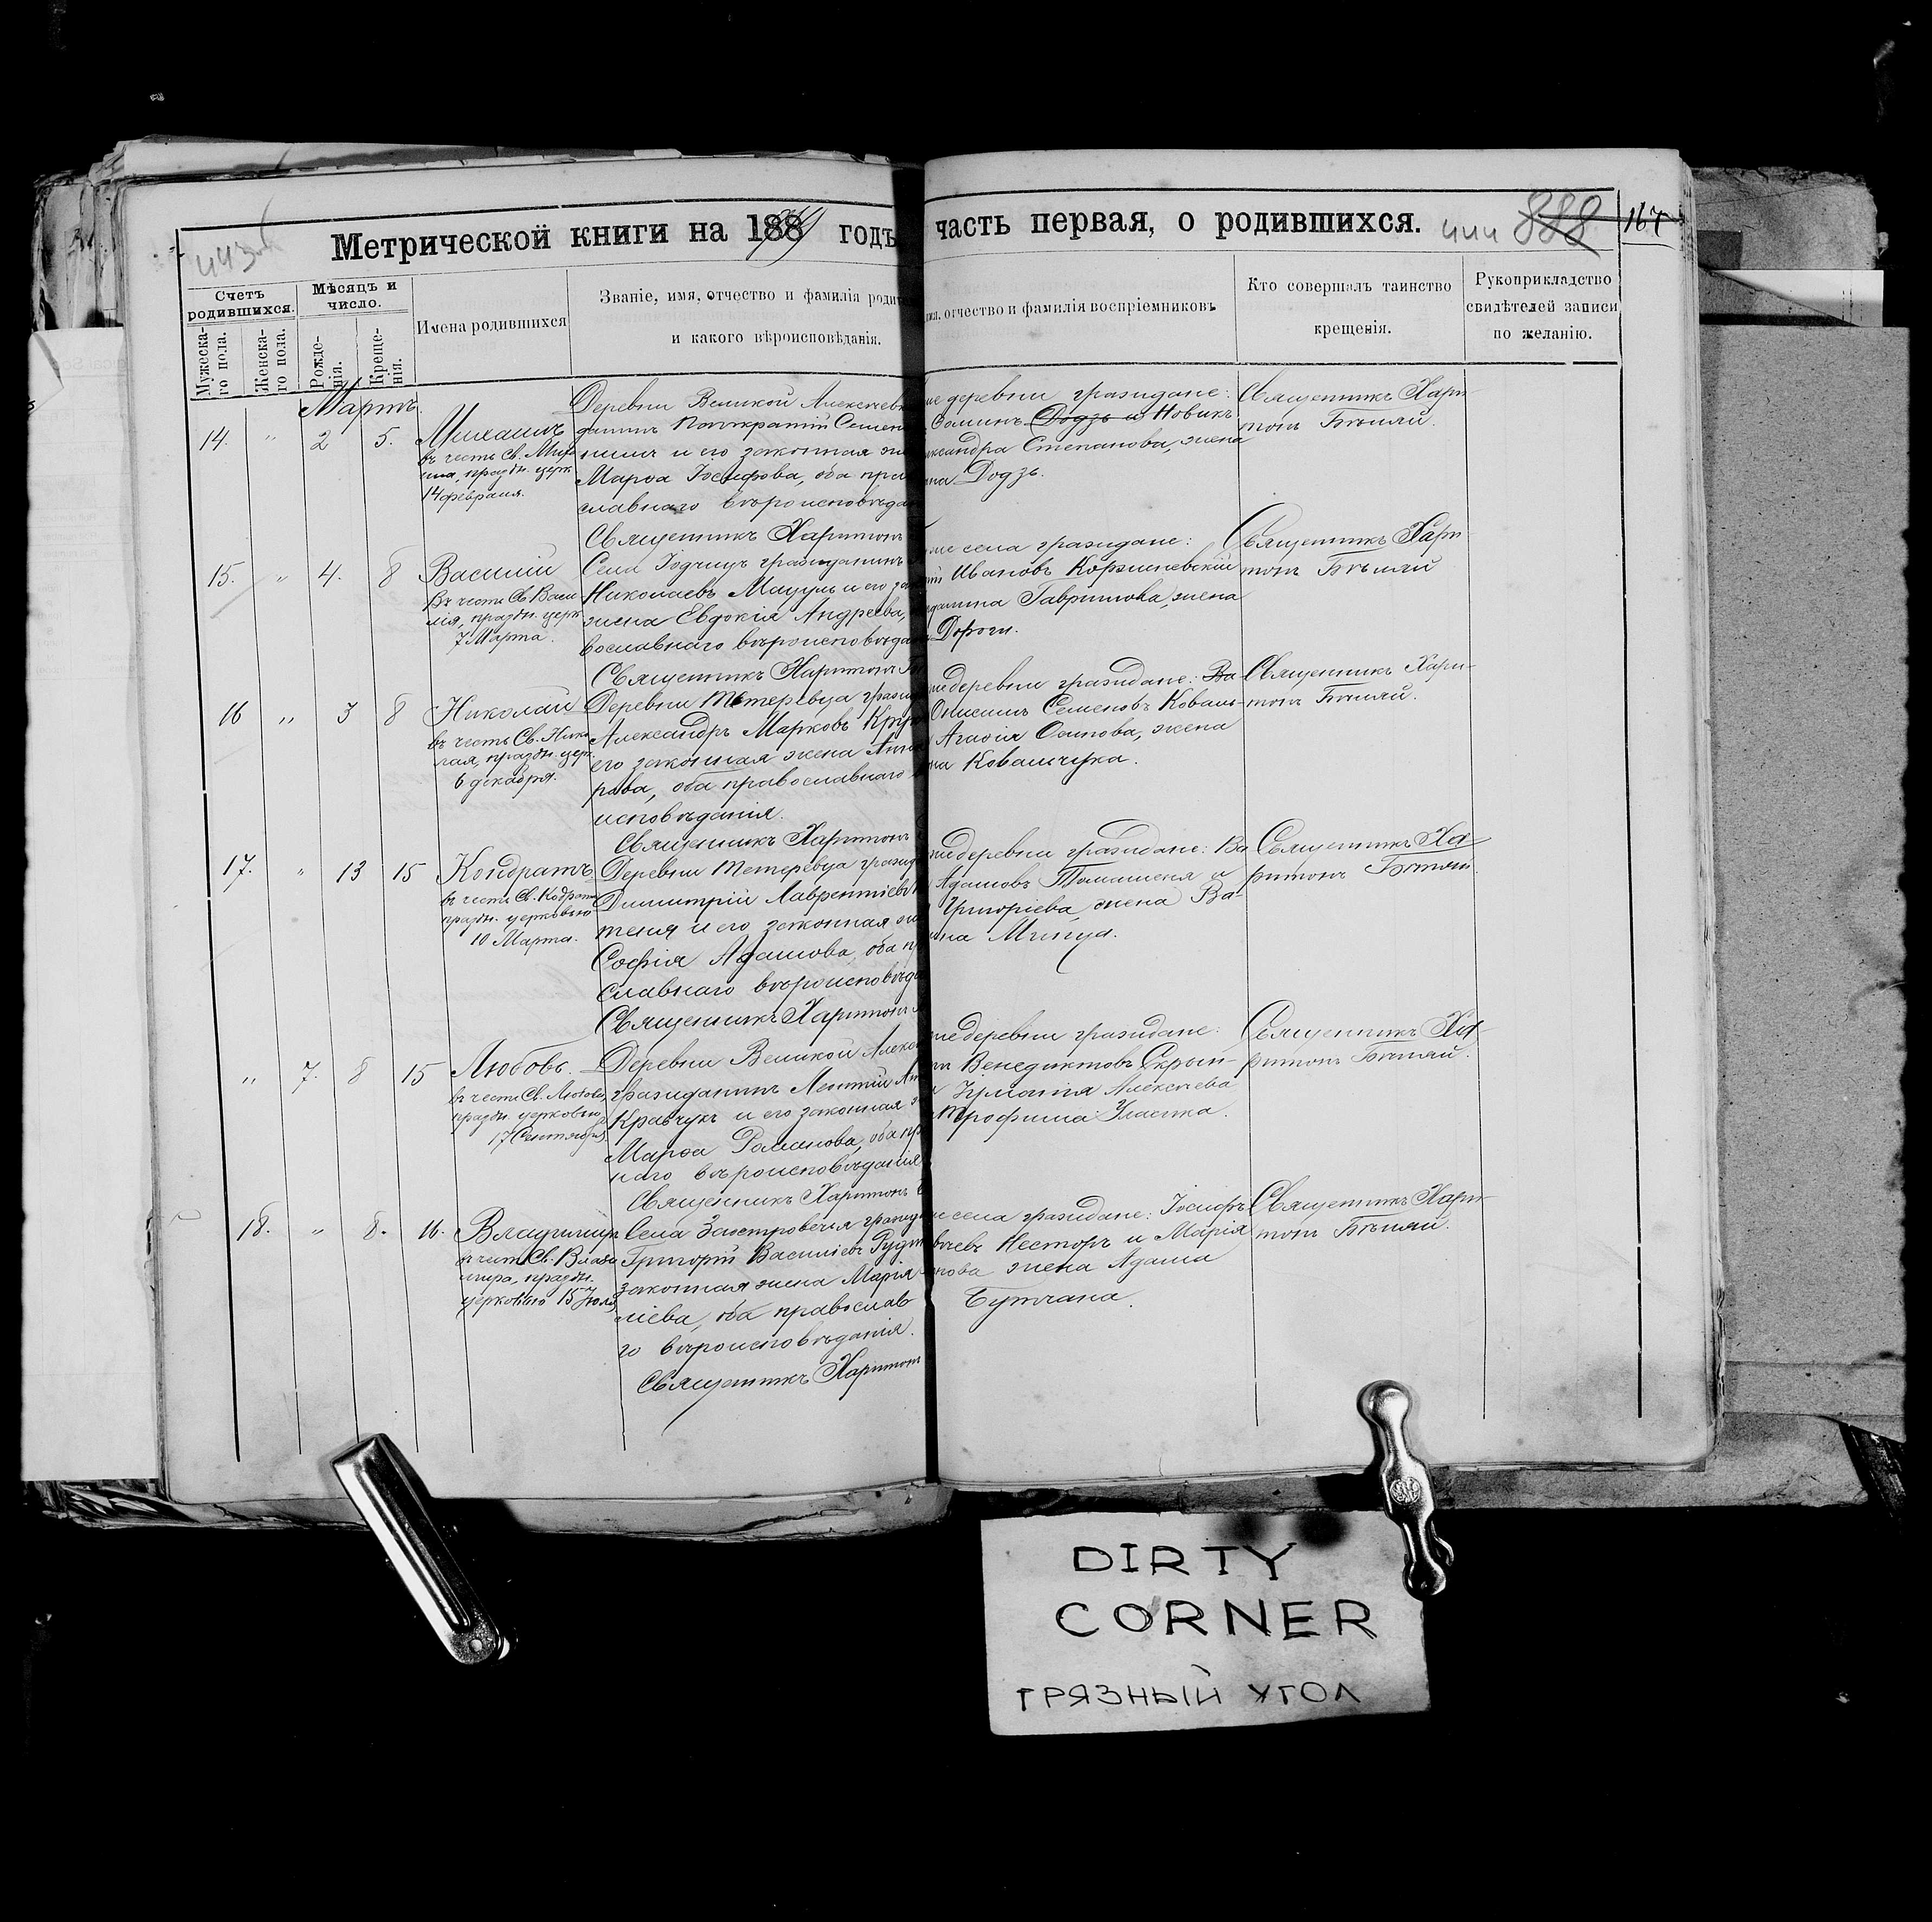 Метрической книги на 1889 годъ часть первая, о родившихся.
888
167
Счетъ родившихся.
Мужеска-
го пола.
Женска-
го пола.
Мѣсяцъ и
число.
Рожде-
нія.
Креще-
нія.
Имена родившихся
Званіе, имя, отчество и фамилія роди
и какого вѣроисповѣданія.
отчество и фамилія воспріемниковъ
Кто совершалъ таинство
крещенія.
Рукоприкладство
свидѣтелей записи
по желанію.
Мартъ.
14. " 2 5.
Михаилъ
въ честь Св. Миха
ила, праздн. церк.
14 февраля.
Деревни Великой Алексеевк
данинъ Панкратій Семен
и его законная же
Марѳа Іосифова, оба пра
славнаго вѣроисповѣда
Священникъ Харитонъ
деревни граждане:
Ѳоминъ Додзь и Новикъ
ксандра Степанова, жена
Додзь.
Священникъ Хари-
тонъ Бѣляй.
15. " 4. 8
Василій
Въ честь Св. Васи-
лія, праздн. церк.
7 Марта.
Села гражданинъ
Николаевъ Мацуль и его зак
жена Евдокія Андреева,
вославнаго вѣроисповѣда
Священникъ Харитонъ
села граждане:
Ивановъ Коржиневскій
Гаврилова, жена
Дороги.
Священникъ Хари-
тонъ Бѣляй
16 " 3 8
Николай
въ честь Св. Нико
лая, праздн. церк.
6 декабря.
Деревни Тетеревца гражд
Александръ Марковъ
его законная жена Анна
рова, оба православнаго
исповѣданія.
Священникъ Харитонъ
деревни граждане: Ва
Онисимъ Семеновъ Коваль-
Агафія жена
на Ковальчука.
Священникъ Хари-
тонъ Бѣляй.
17. " 13 15
Кондратъ
въ честь Св. Кодрата
праздн. церковью
10 Марта.
Деревни Тетеревца гражд
Димитрій Лаврентіевъ
теня и его законная же
Софія Адамова, оба пр
славнаго вѣроисповѣда
Священникъ Харитонъ
деревни граждане: Ва
Адамовъ и
Григоріева, жена Ва-
Священникъ Ха-
ритонъ Бѣляй.
" 7. 8 15
Любовь.
въ честь Св. Любови,
праздн. церковью
17 Сентября.
Деревни Великой Алекс
гражданинъ Леонтій
Кравчук и его законная
Марѳа Романова, оба пр
наго вѣроисповѣданія
Священникъ Харитонъ
деревни граждане:
Венедиктовъ
Алексеева
Трофима
Священникъ Ха-
ритонъ Бѣляй.
18. " 8. 16.
Владимиръ
въ честь Св. Влади
мира, праздн.
церковью 15 Іюля
Села Заостровечья гражд
Григорій Василіевъ
законная жена Марія
ліева, оба православ
го вѣроисповѣданія.
Священникъ Харитонъ
села граждане: Іосифъ
Несторъ и Марія
нова жена Адама
Священникъ Хари-
тонъ Бѣляй.
DIRTY
CORNER
ГРЯЗНЫЙ УГОЛ